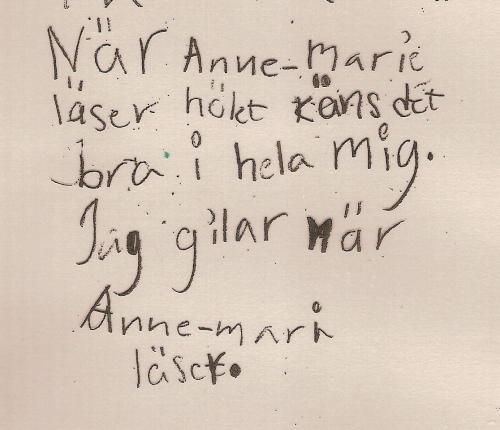 När Anne-Marie
läser hökt käns det
bra i hela mig.
Jag gilar när
Anne-mari
läser.